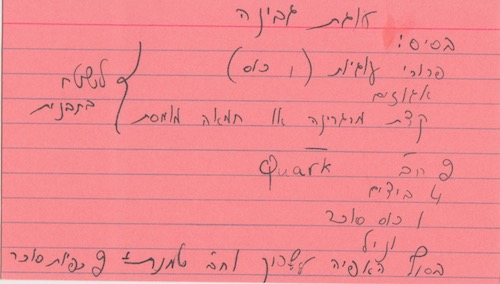 עוגת גבינה
בסיס:
פרורי עוגיות (1 כוס)
אגוזים
קצת מרגרינה או חמאה מומסת
לשטח
בתבנית
2 Quark
4 ביצים
1 כוס סוכר
וניל
בסוף האפיה לשפוך שמנת 2 כפיות סוכר